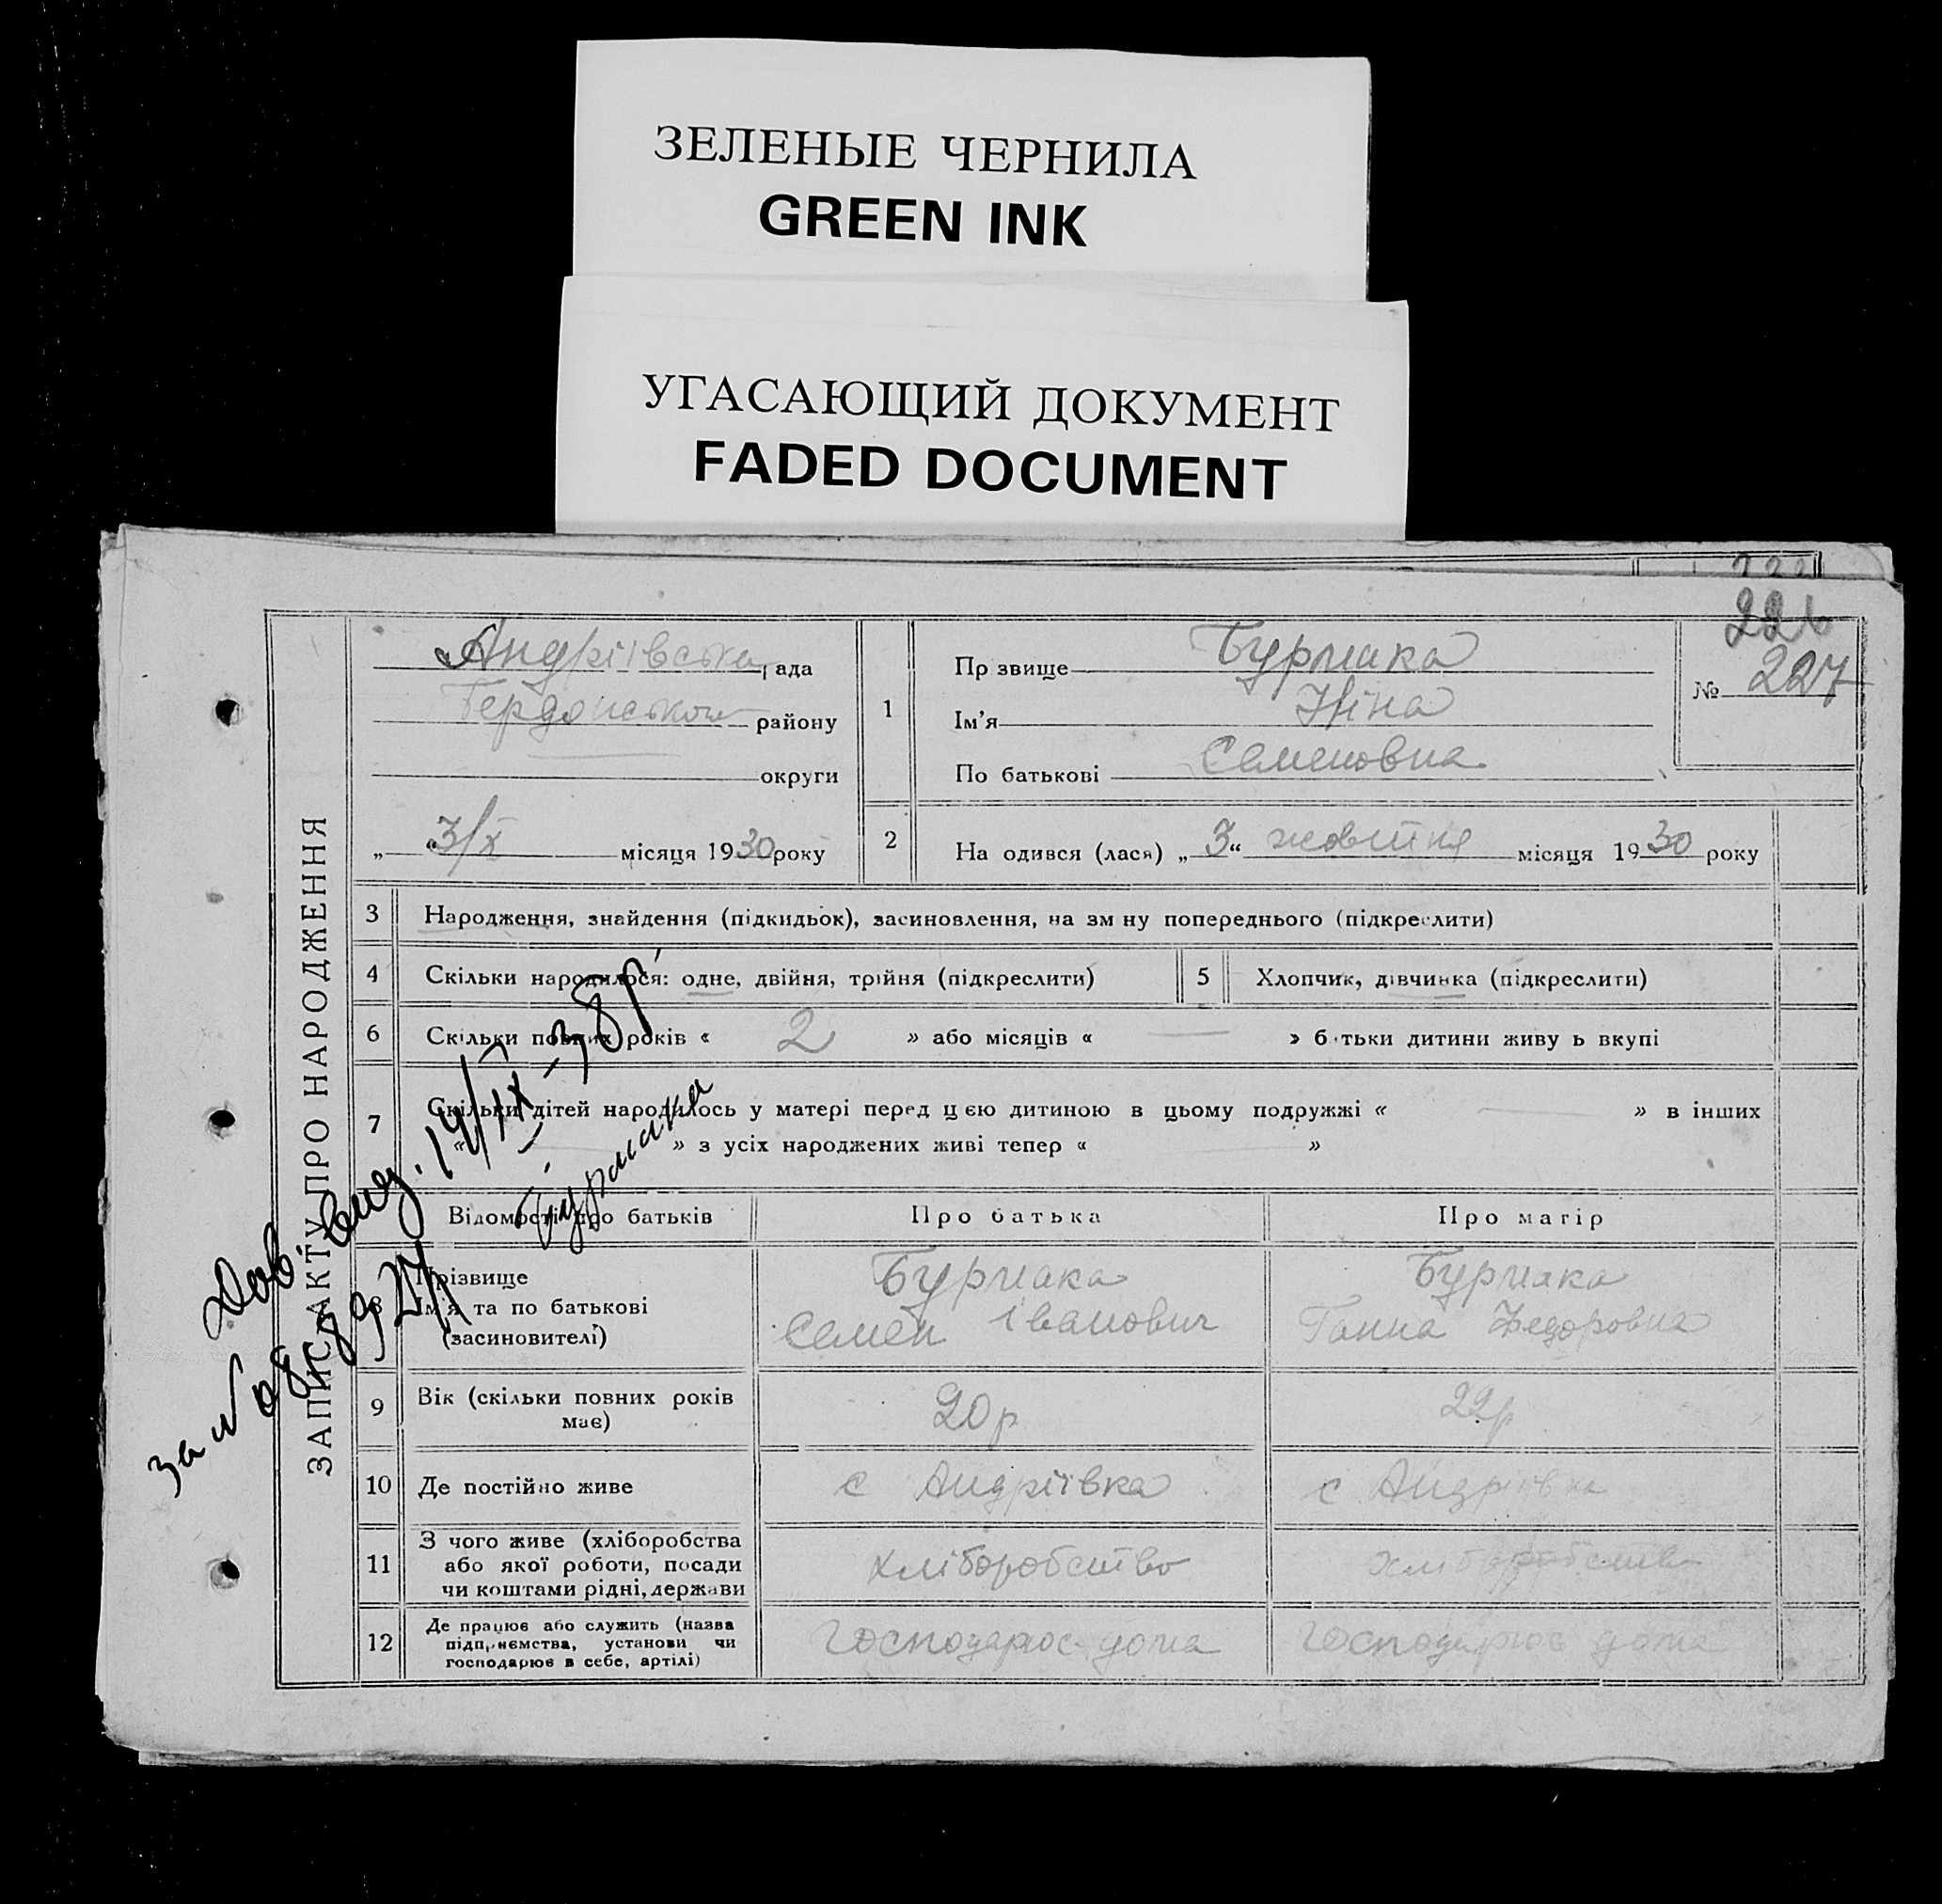 ЗЕЛЕНЫЕ ЧЕРНИЛА
GREEN INK
УГАСАЮЩИЙ ДОКУМЕНТ
FADED DOCUMENT
226
Андріївська рада
№ 227
Бердянського району
округи
„ “ 3/X місяця 1930 року
1
Пр звище Бурмака
Ім'я Ніна
По батькові Семеновна
2
На одився (лася) „ 3 “ жовтня місяця 1930 року
ЗАПИС АКТУ ПРО НАРОДЖЕННЯ
3 Народження, знайдення (підкидьок), засиновлення, на зм ну попереднього (підкреслити)
4 Скільки народилося: одне, двійня, трійня (підкреслити)
5 Хлопчик, дівчинка (підкреслити)
6 Скільки повних років « 2 » або місяців « — » б тьки дитини живу ь вкупі
7 Скільки дітей народилось у матері перед цією дитиною в цьому подружжі « — » в інших
« — » з усіх народжених живі тепер « — »
Відомості про батьків
Про батька
Про матір
8 Прізвище
Ім'я та по батькові
(засиновителі)
Бурмака
Семен Іванович
Бурмака
Ганна Федоровна
9 Вік (скільки повних років має)
20 р
22 р
10 Де постійно живе
с Андріївка
с Андріївка
11 З чого живе (хліборобства
або якої роботи, посади
чи коштами рідні, держави
хліборобство
хліборобство
12 Де працює або служить (назва
підприємства, установи чи
господарює в себе, артілі)
Господарює дома
Господарює дома
14/IX – 38 р
за №
Бурмака